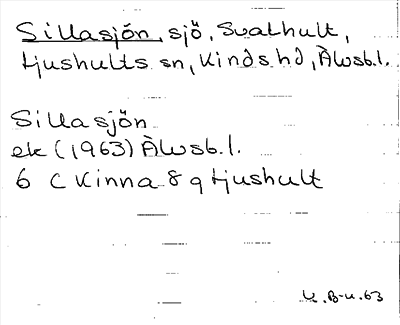 Sillasjön, sjö, Svathult,
Ljushults sn, Kinds hd, Älvsb.l.
Sillasjön
ek (1963) Älvsb.l.
6 C Kinna 8 g Ljushult
U.B-u.63